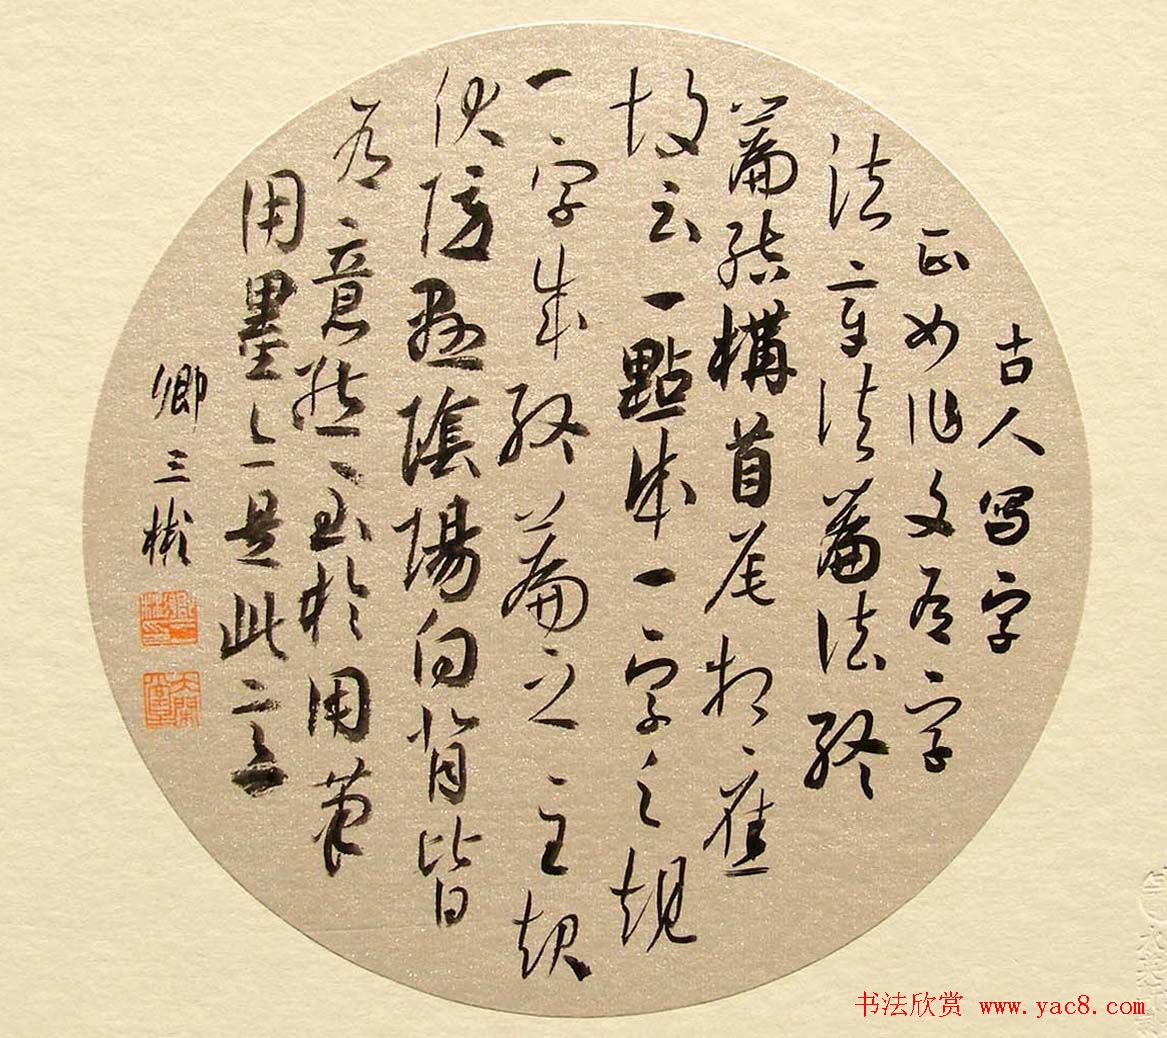 古人写字
正如作文有字
法章法篇法終
篇結構首尾相應
故云一點成一字之規
一字成終篇之主起
伏隱顯陰陽向背皆
有意態至於用筆
用墨亦是此意
卿三彬
书法欣赏 www.yac8.com